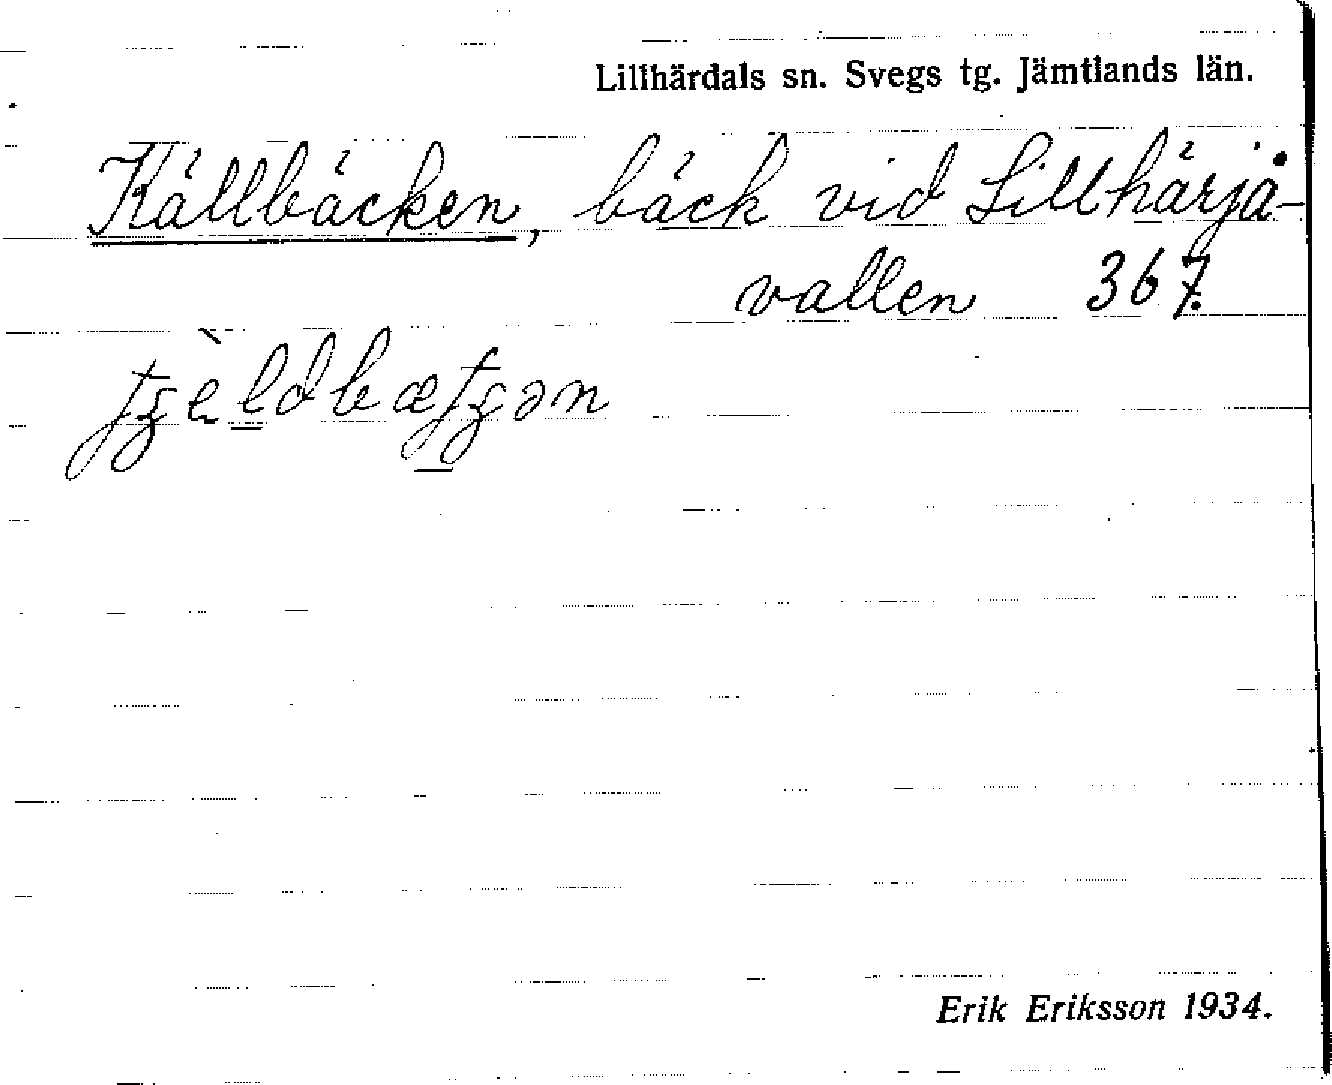 Lillhärdals sn. Svegs tg. Jämtlands län.
Källbäcken, bäck vid Lillhärjå-
vallen 367.
Erik Eriksson 1934.